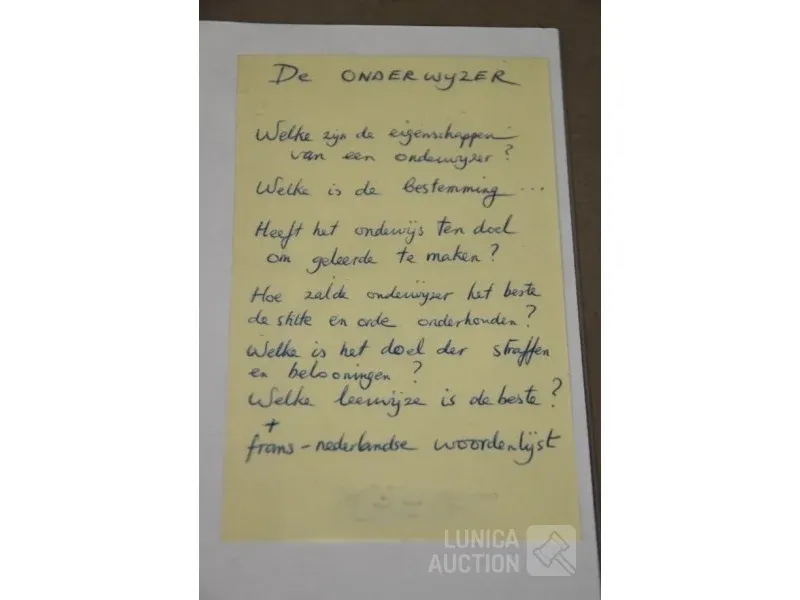 De ONDERWYZER
Welke zijn de eigenschappen
van een onderwyzer?
Welke is de bestemming...
Heeft het onderwijs ten doel
om geleerde te maken?
Hoe zal de onderwijzer het beste
de stilte en orde onderhouden?
Welke is het doel der straffen
en belooningen?
Welke leerwijze is de beste?
+
frans-nederlandse woordenlijst
LUNICA
AUCTION